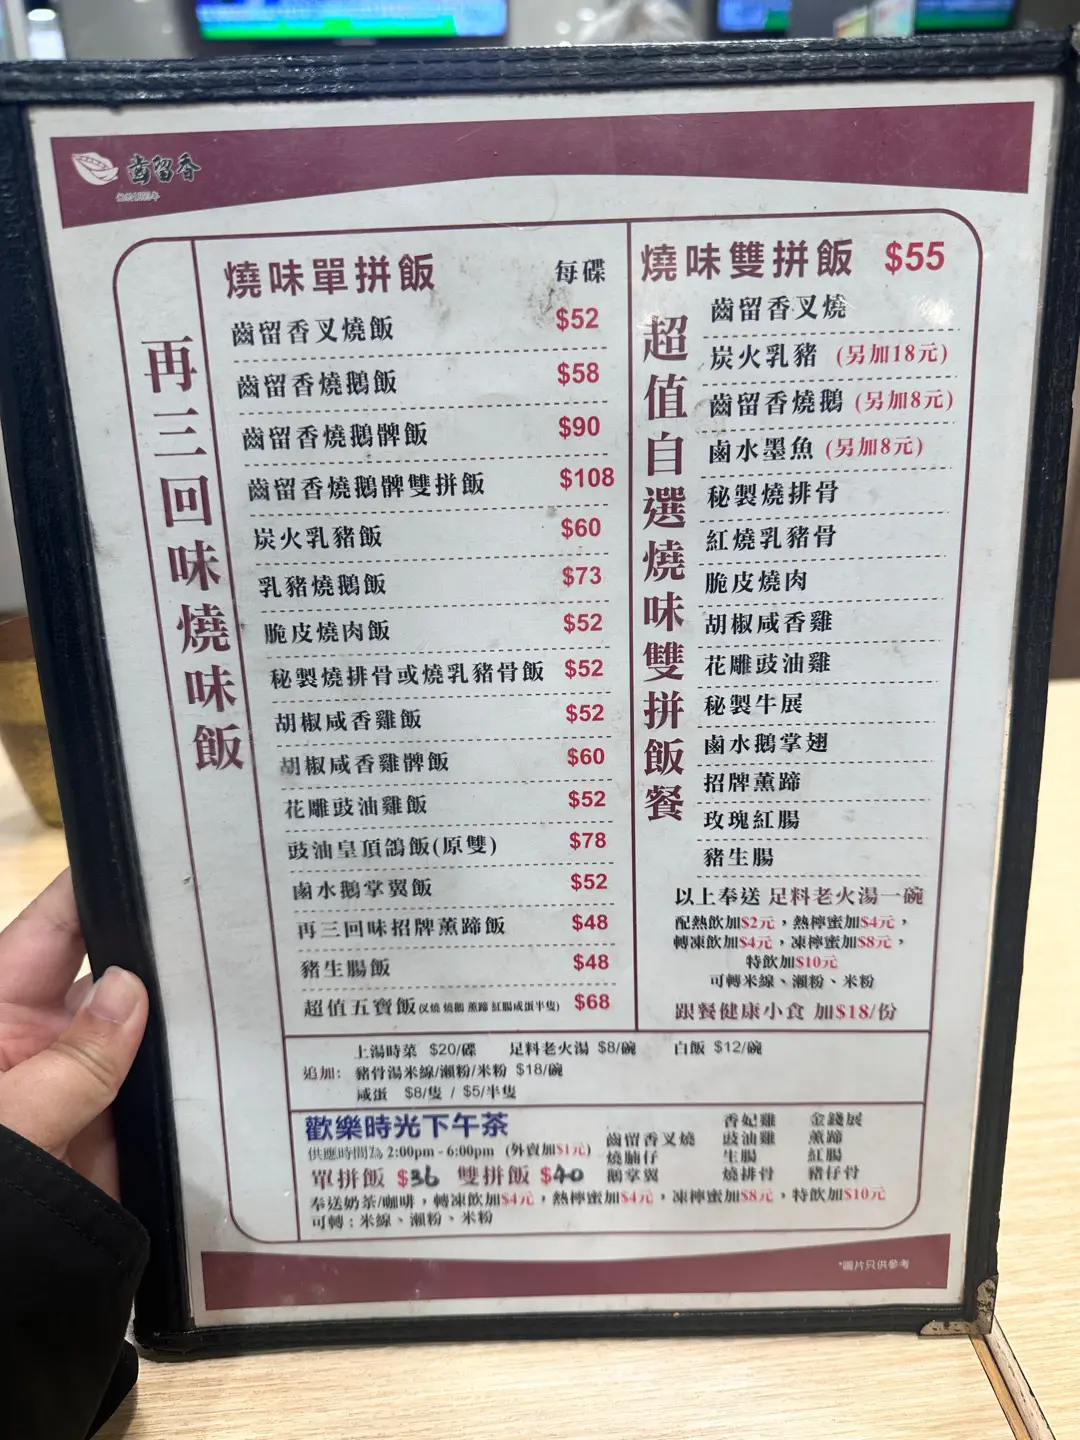 齒留香
再三回味燒味飯
燒味單拼飯 每碟
齒留香叉燒飯 $52
齒留香燒鵝飯 $58
齒留香燒鵝髀飯 $90
齒留香燒鵝髀雙拼飯 $108
炭火乳豬飯 $60
乳豬燒鵝飯 $73
脆皮燒肉飯 $52
秘製燒排骨或燒乳豬骨飯 $52
胡椒咸香雞飯 $52
胡椒咸香雞髀飯 $60
花雕豉油雞飯 $52
豉油皇頂鴿飯(原雙) $78
鹵水鵝掌翼飯 $52
再三回味招牌薰蹄飯 $48
豬生腸飯 $48
超值五寶飯(叉燒 燒鵝 薰蹄 紅腸咸蛋半隻) $68
燒味雙拼飯 $55
超值自選燒味雙拼飯餐
齒留香叉燒
炭火乳豬 (另加18元)
齒留香燒鵝 (另加8元)
鹵水墨魚 (另加8元)
秘製燒排骨
紅燒乳豬骨
脆皮燒肉
胡椒咸香雞
花雕豉油雞
秘製牛展
鹵水鵝掌翅
招牌薰蹄
玫瑰紅腸
豬生腸
以上奉送 足料老火湯一碗
配熱飲加$2元，熱檸蜜加$4元，
轉凍飲加$4元，凍檸蜜加$8元，
特飲加$10元
可轉米線、瀨粉、米粉
跟餐健康小食 加$18/份
上湯時菜 $20/碟 足料老火湯 $8/碗 白飯 $12/碗
追加: 豬骨湯米線/瀨粉/米粉 $18/碗
咸蛋 $8/隻 / $5/半隻
歡樂時光下午茶
供應時間為 2:00pm - 6:00pm (外賣加$1元)
單拼飯 $36 雙拼飯 $40
香妃雞 金錢展
齒留香叉燒 豉油雞 薰蹄
燒腩仔 生腸 紅腸
鵝掌翼 燒排骨 豬仔骨
奉送奶茶/咖啡，轉凍飲加$4元，熱檸蜜加$4元，凍檸蜜加$8元，特飲加$10元
可轉：米線、瀨粉、米粉
*圖片只供參考